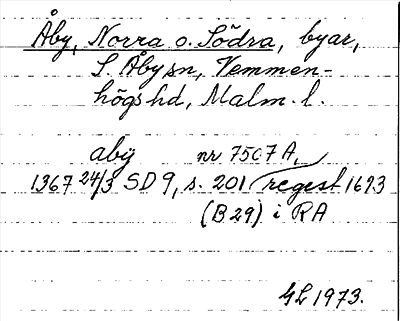 Åby, Norra o. Södra, byar,
S. Åby sn, Vemmen-
högs hd, Malm. l.
abÿ nr 7507 A,
1367 24/3 SD 9, s. 201 (regest 1693
(B 29) i RA
GL 1973.